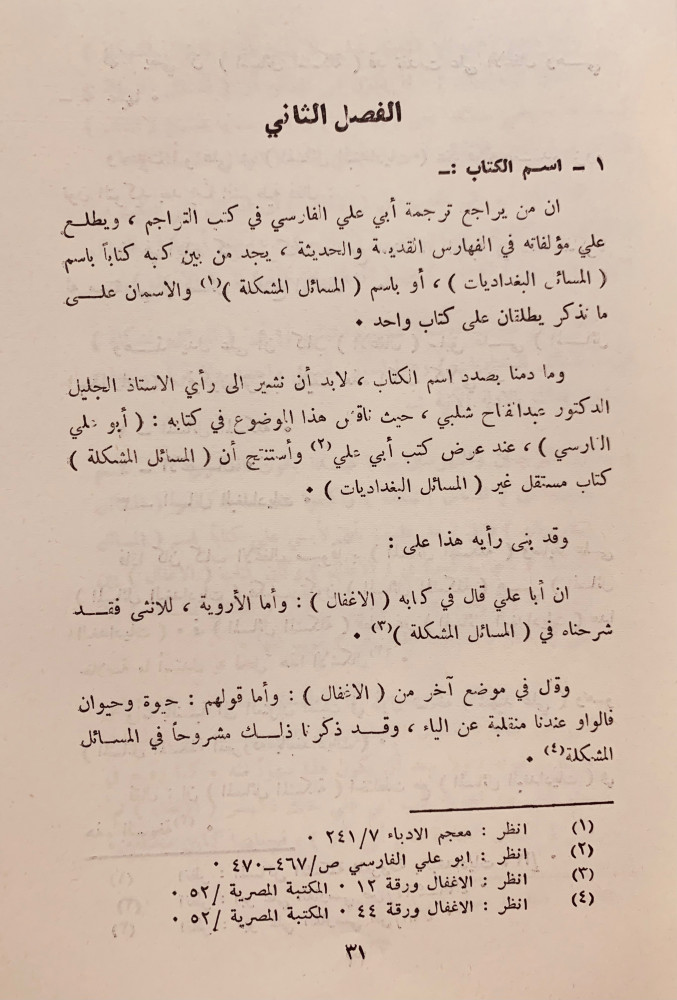 الفصل الثاني
١ ـ اسم الكتاب :ـ
ان من يراجع ترجمة أبي علي الفارسي في كتب التراجم ، ويطلع
علي مؤلفاته في الفهارس القديمة والحديثة ، يجد من بين كتبه كتاباً باسم
( المسائل البغداديات ) ، أو باسم ( المسائل المشكلة )(١) والاسمان على
ما نذكر يطلقان على كتاب واحد ٠
وما دمنا بصدد اسم الكتاب ، لابد أن نشير الى رأي الاستاذ الجليل
الدكتور عبدالفتاح شلبي ، حيث ناقش هذا الموضوع في كتابه : ( أبو علي
الفارسي ) ، عند عرض كتب أبي علي(٢) وأستنتج أن ( المسائل المشكلة )
كتاب مستقل غير ( المسائل البغداديات ) ٠
وقد بنى رأيه هذا على :
ان أبا علي قال في كتابه ( الاغفال ) : وأما الأروية ، للانثى فقد
شرحناه في ( المسائل المشكلة )(٣) ٠
وقال في موضع آخر من ( الاغفال ) : وأما قولهم : حيوة وحيوان
فالواو عندنا منقلبة عن الياء ، وقد ذكرنا ذلك مشروحاً في المسائل
المشكلة(٤) ٠
(١) انظر : معجم الادباء ٢٤١/٧ ٠
(٢) انظر : ابو علي الفارسي ص/٤٦٧ـ٤٧٠ ٠
(٣) انظر : الاغفال ورقة ١٢ ٠ المكتبة المصرية /٥٢ ٠
(٤) انظر : الاغفال ورقة ٤٤ ٠ المكتبة المصرية /٥٢ ٠
٣١